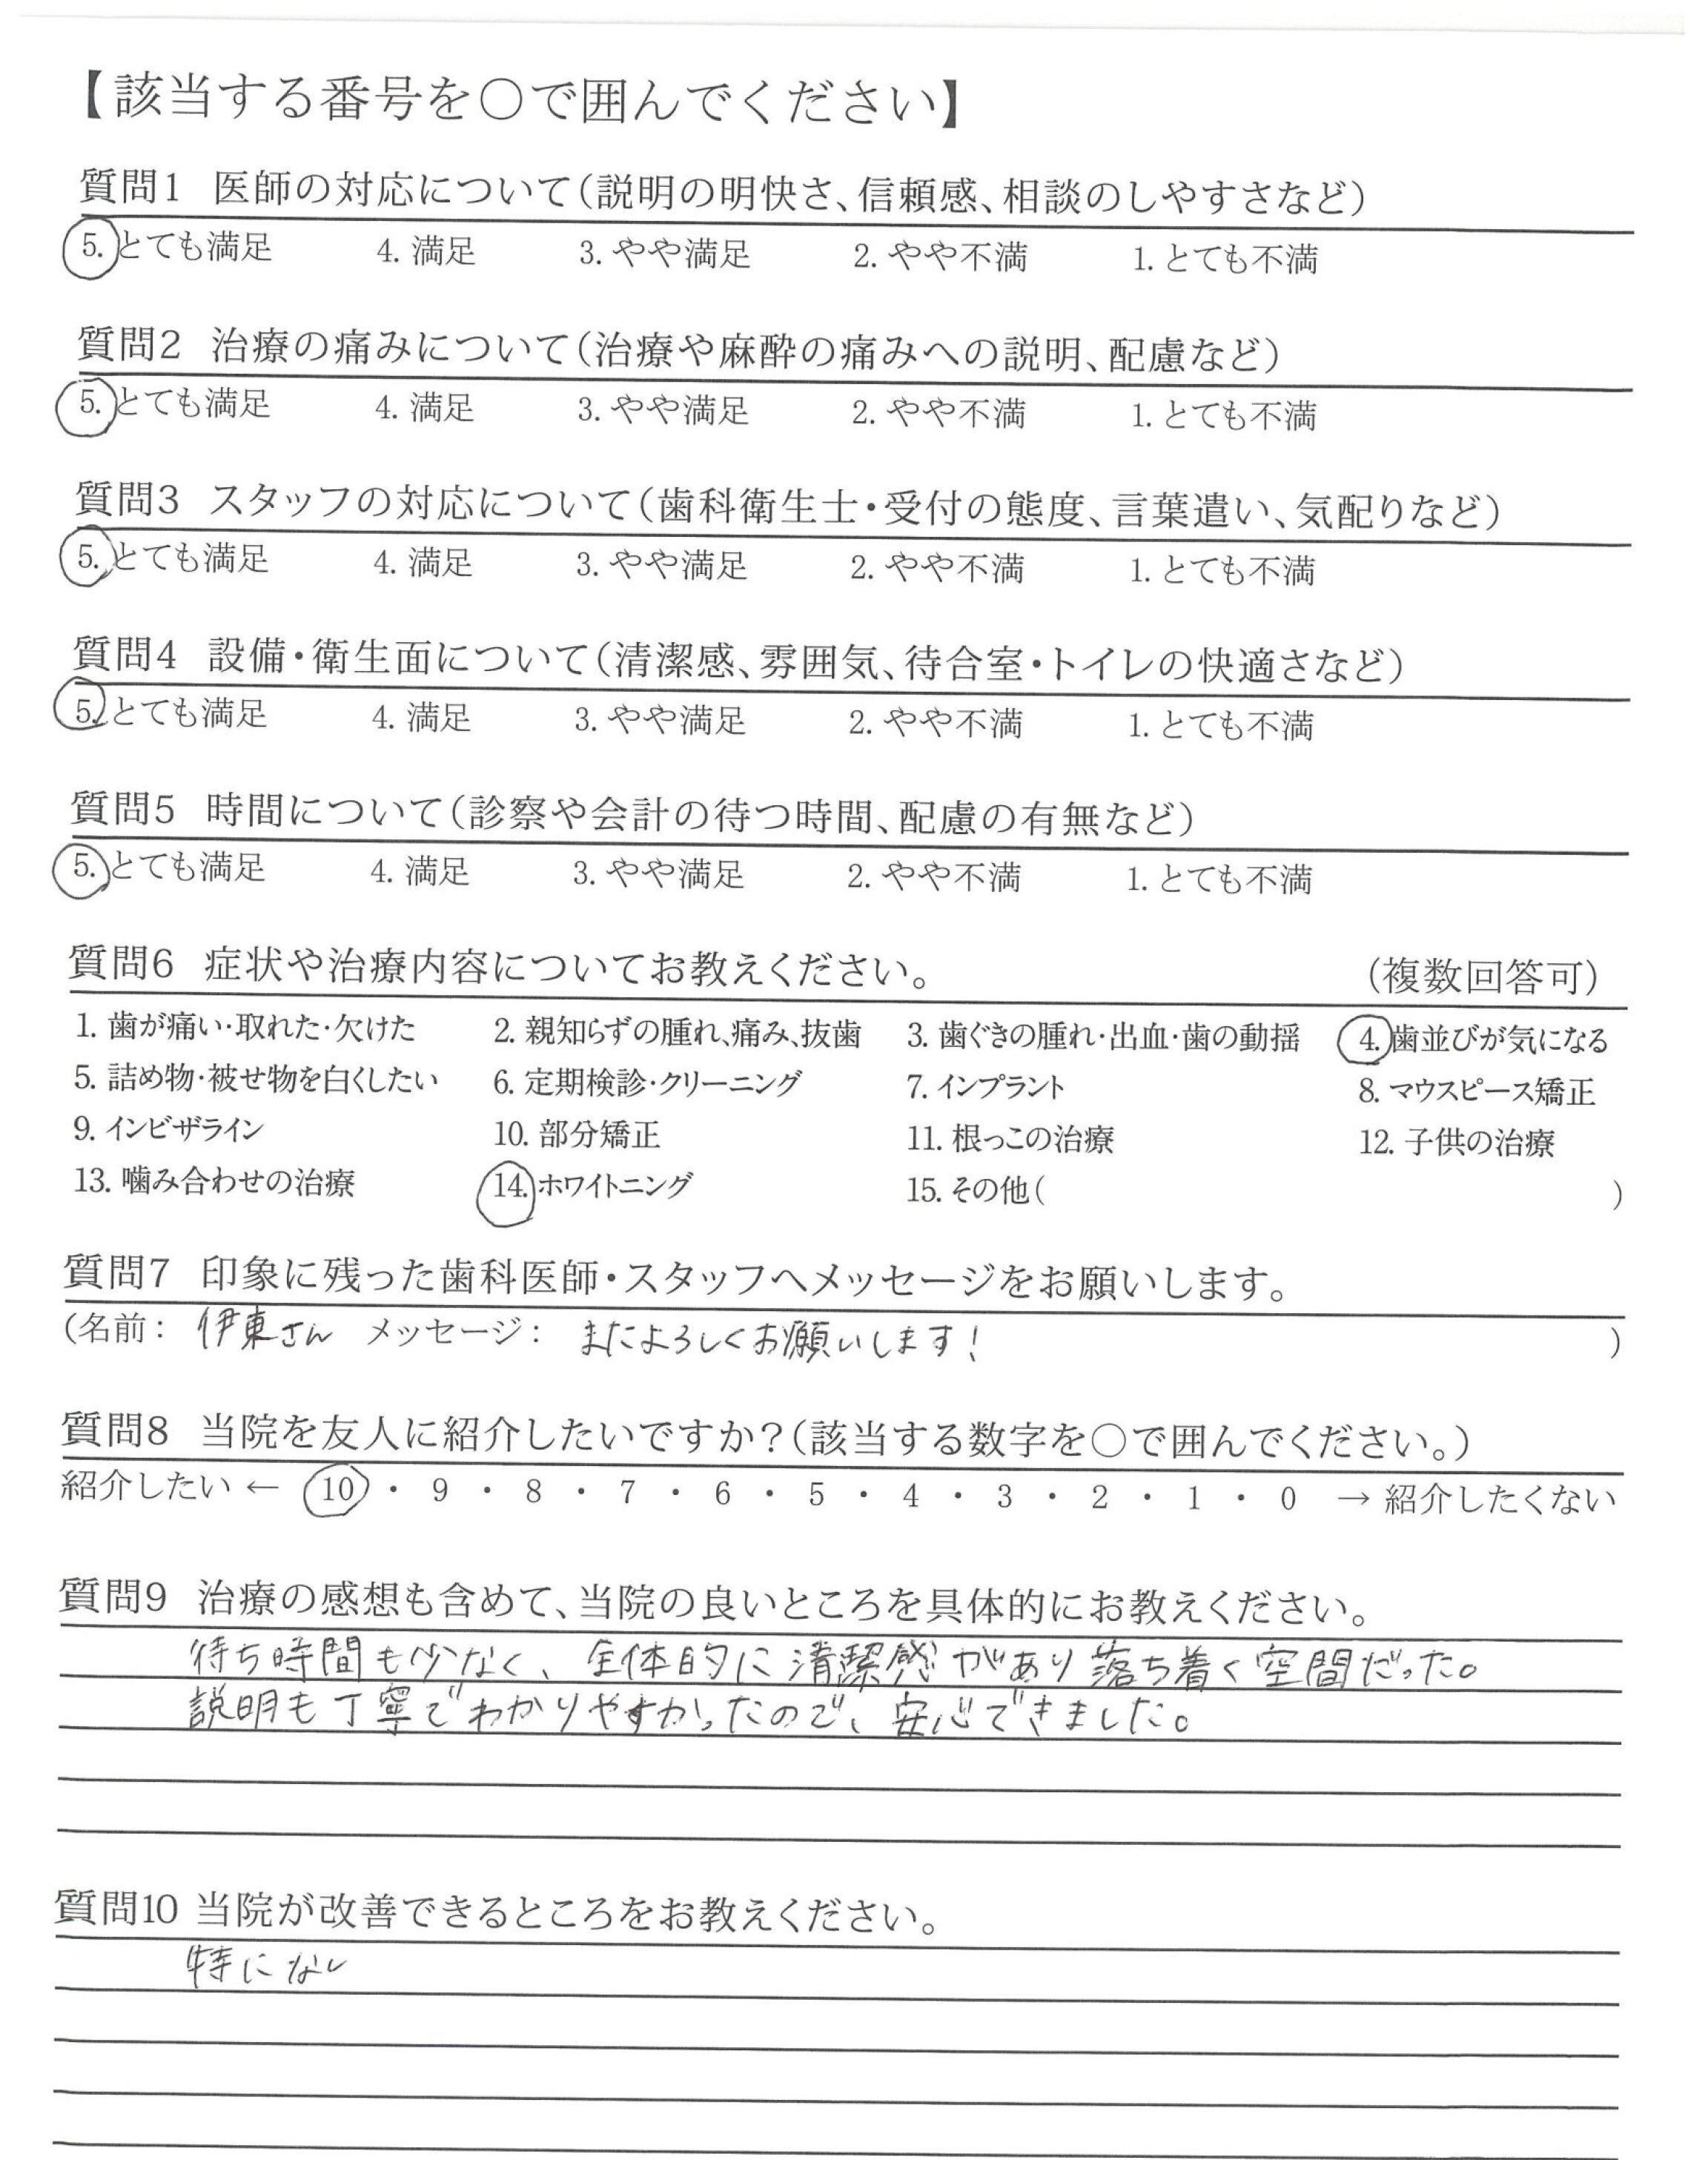 【該当する番号を〇で囲んでください】
質問1 医師の対応について(説明の明快さ、信頼感、相談のしやすさなど)
5. とても満足 4. 満足 3. やや満足 2. やや不満 1. とても不満
質問2 治療の痛みについて(治療や麻酔の痛みへの説明、配慮など)
5. とても満足 4. 満足 3. やや満足 2. やや不満 1. とても不満
質問3 スタッフの対応について(歯科衛生士・受付の態度、言葉遣い、気配りなど)
5. とても満足 4. 満足 3. やや満足 2. やや不満 1. とても不満
質問4 設備・衛生面について(清潔感、雰囲気、待合室・トイレの快適さなど)
5. とても満足 4. 満足 3. やや満足 2. やや不満 1. とても不満
質問5 時間について(診察や会計の待つ時間、配慮の有無など)
5. とても満足 4. 満足 3. やや満足 2. やや不満 1. とても不満
質問6 症状や治療内容についてお教えください。 (複数回答可)
1. 歯が痛い・取れた・欠けた 2. 親知らずの腫れ、痛み、抜歯 3. 歯ぐきの腫れ・出血・歯の動揺 4. 歯並びが気になる
5. 詰め物・被せ物を白くしたい 6. 定期検診・クリーニング 7. インプラント 8. マウスピース矯正
9. インビザライン 10. 部分矯正 11. 根っこの治療 12. 子供の治療
13. 噛み合わせの治療 14. ホワイトニング 15. その他( )
質問7 印象に残った歯科医師・スタッフへメッセージをお願いします。
(名前: 伊東さん メッセージ: またよろしくお願いします! )
質問8 当院を友人に紹介したいですか?(該当する数字を〇で囲んでください。)
紹介したい ← 10 ・ 9 ・ 8 ・ 7 ・ 6 ・ 5 ・ 4 ・ 3 ・ 2 ・ 1 ・ 0 → 紹介したくない
質問9 治療の感想も含めて、当院の良いところを具体的にお教えください。
待ち時間も少なく、全体的に清潔感があり落ち着く空間だった。
説明も丁寧でわかりやすかったので、安心できました。
質問10 当院が改善できるところをお教えください。
特になし